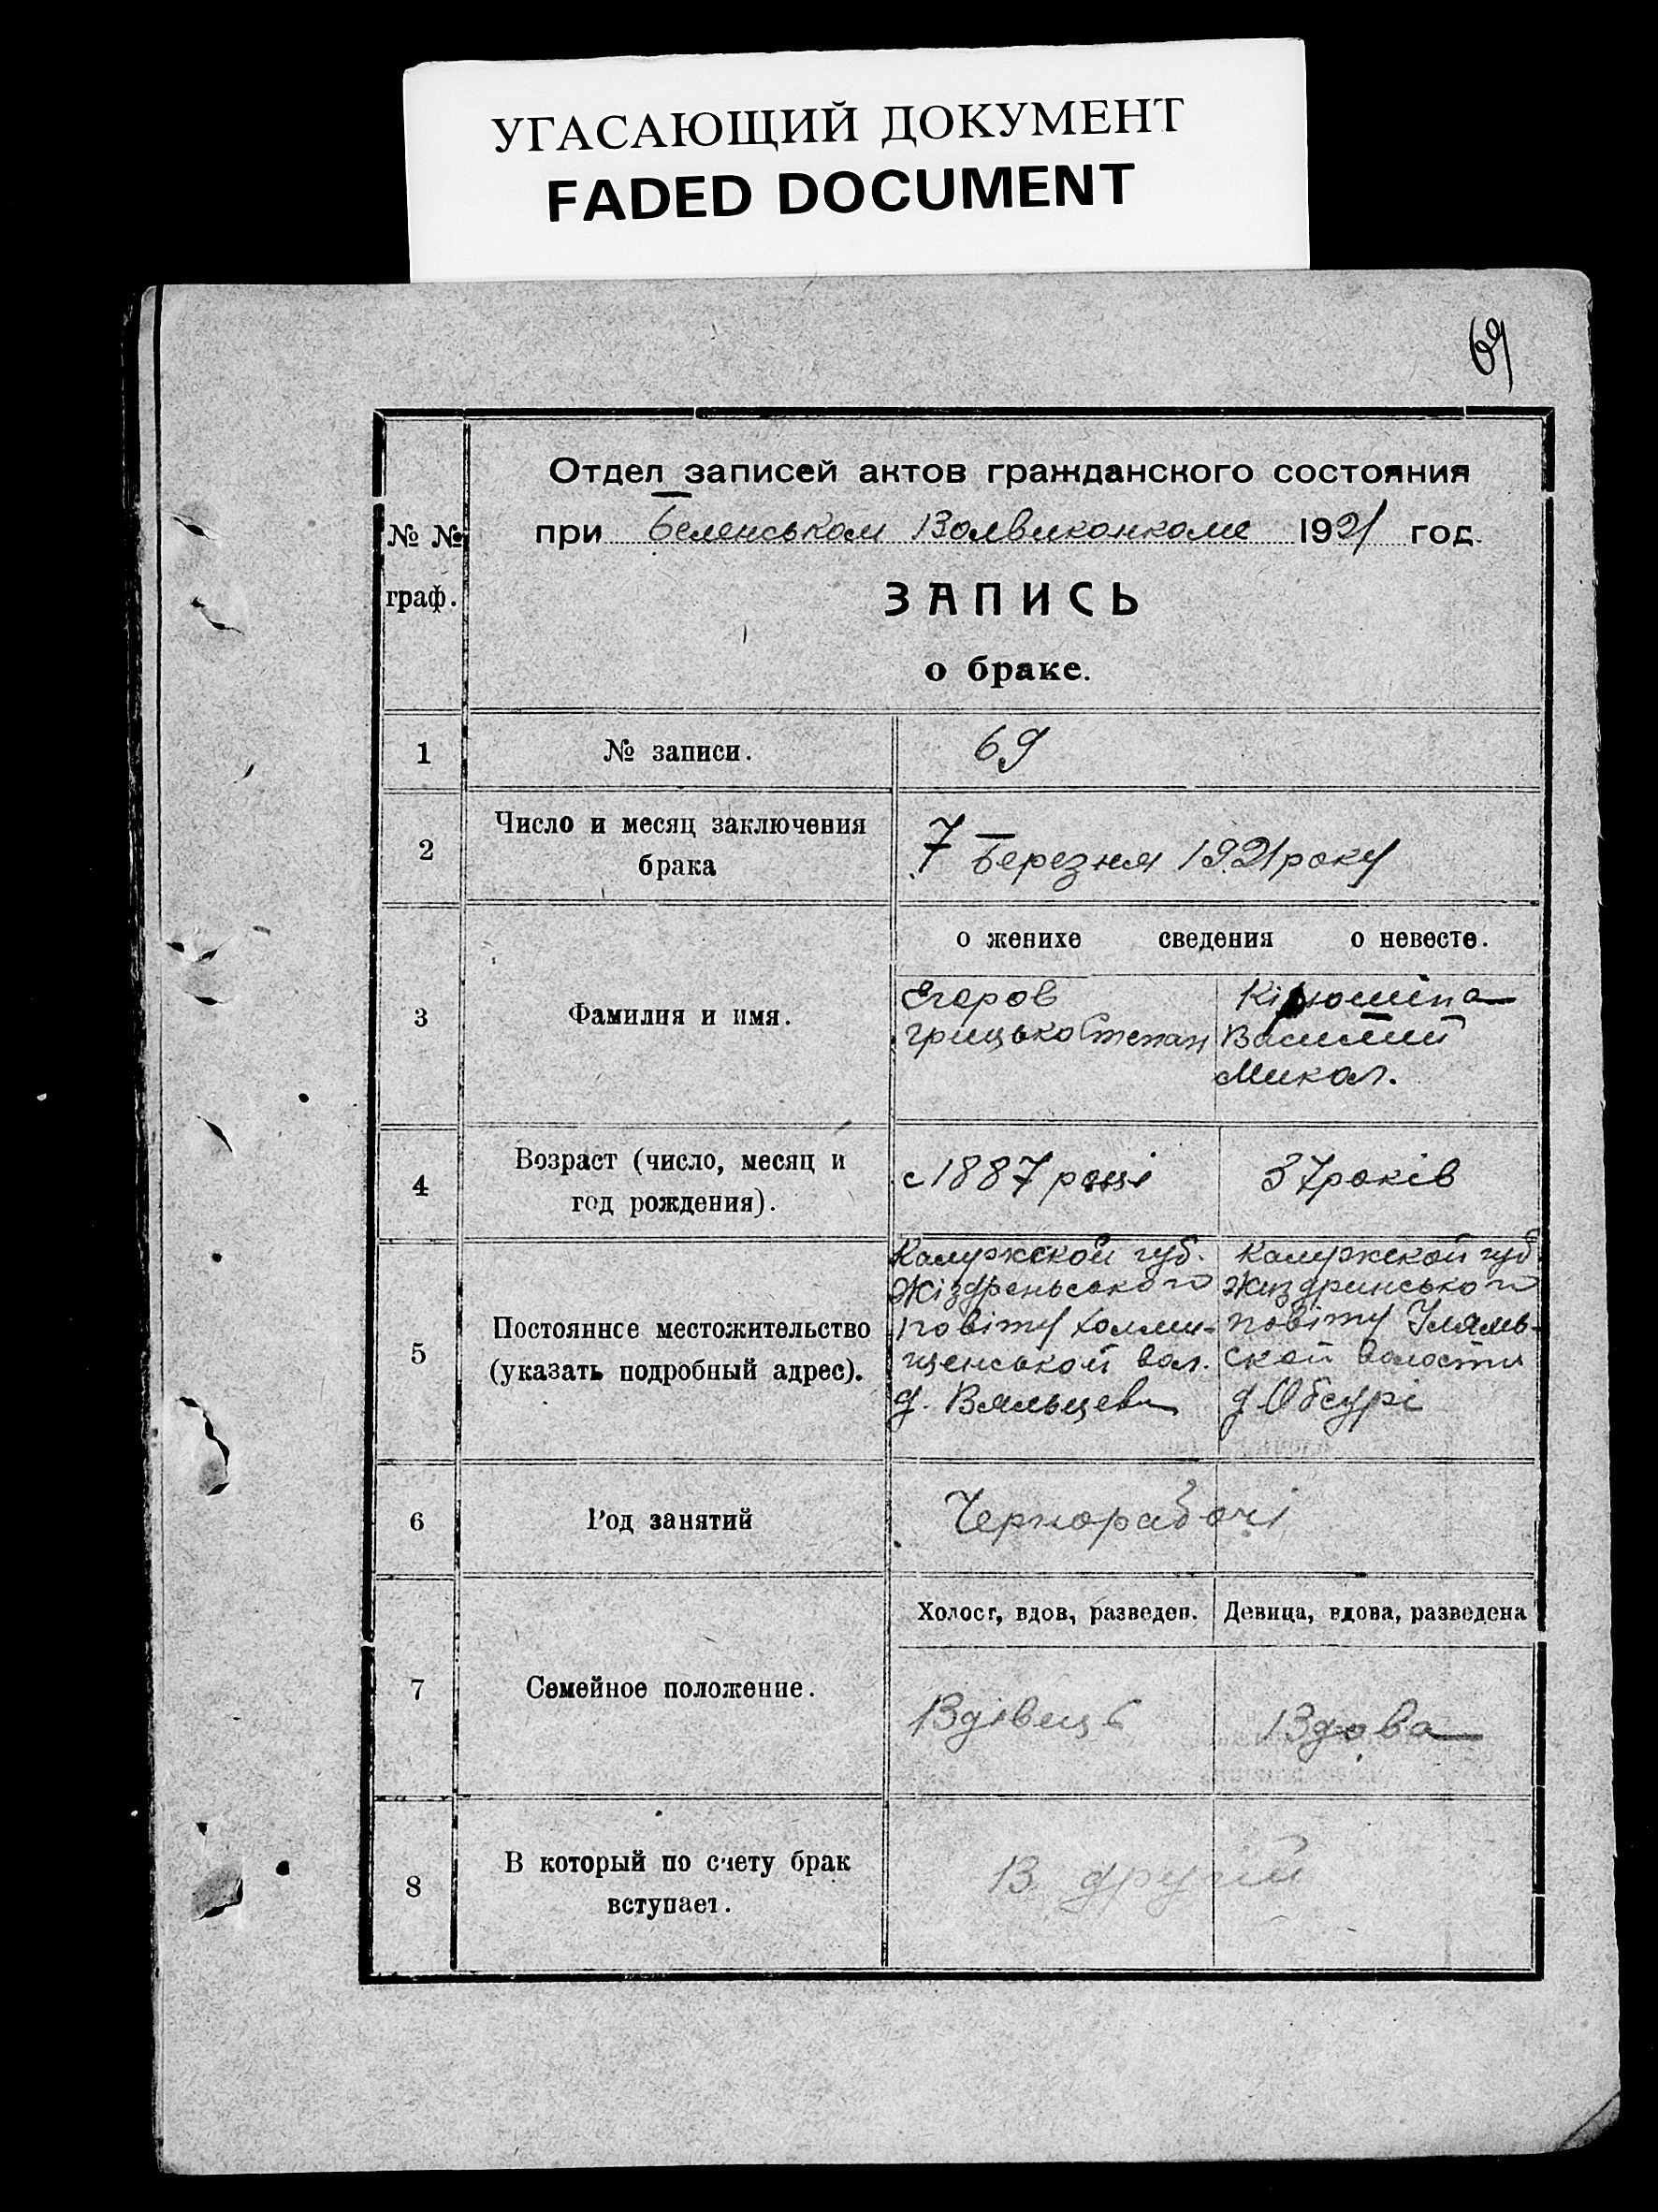 УГАСАЮЩИЙ ДОКУМЕНТ
FADED DOCUMENT
69
№ № граф.
Отдел записей актов гражданского состояния
при Беленськом Волвиконкоме 1921 год.
ЗАПИСЬ
о браке.
1 № записи. 69
2 Число и месяц заключения
брака
7 Березня 1921 року
о женихе сведения о невесте.
3 Фамилия и имя.
Егоров
Грицько Степан
Василий
Микол.
4 Возраст (число, месяц и
год рождения).
с 1887 році 37 років
5 Постоянное местожительство
(указать подробный адрес).
Калужской губ.
Жіздреньського
повіту Холми-
щенськой вол.
д. Вяльцева
Калужской губ
Жиздринського
повіту Улямь-
ской волости
д Обсурі
6 Род занятий
Чернорабочі
Холост, вдов, разведен. Девица, вдова, разведена
7 Семейное положение.
Вдівець Вдова
8 В который по счету брак
вступает.
В другій